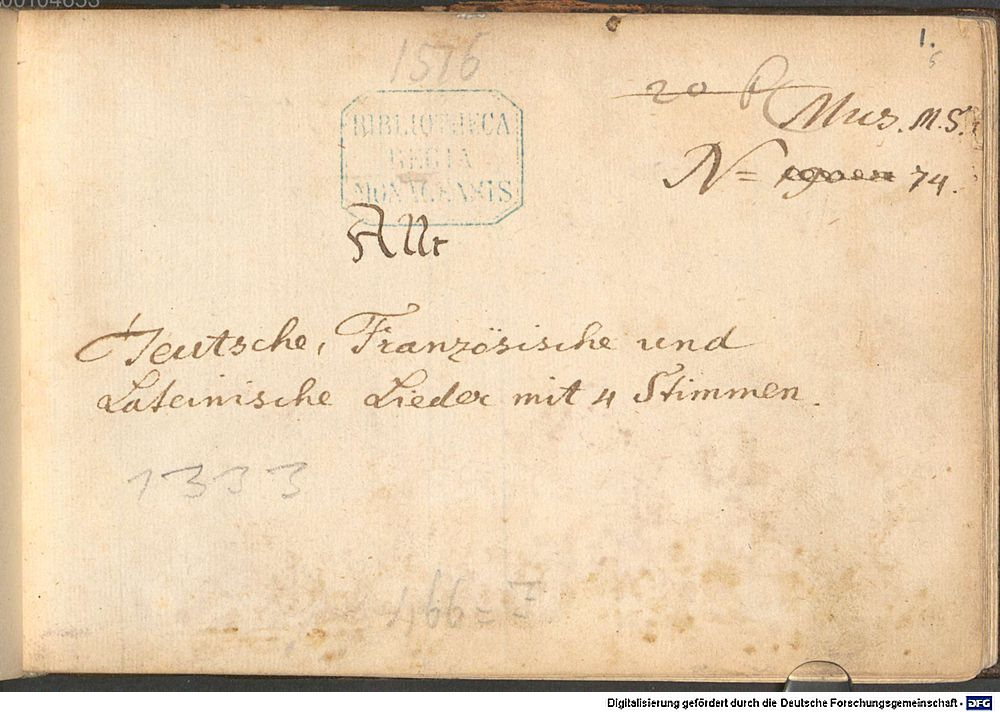 1.
1516
20
Mus. M.S.
BIBLIOTHECA
REGIA
MONACENSIS
N= 74.
Allt
Teutsche, Französische und
Lateinische Lieder mit 4 Stimmen.
1333
Digitalisierung gefördert durch die Deutsche Forschungsgemeinschaft - DFG